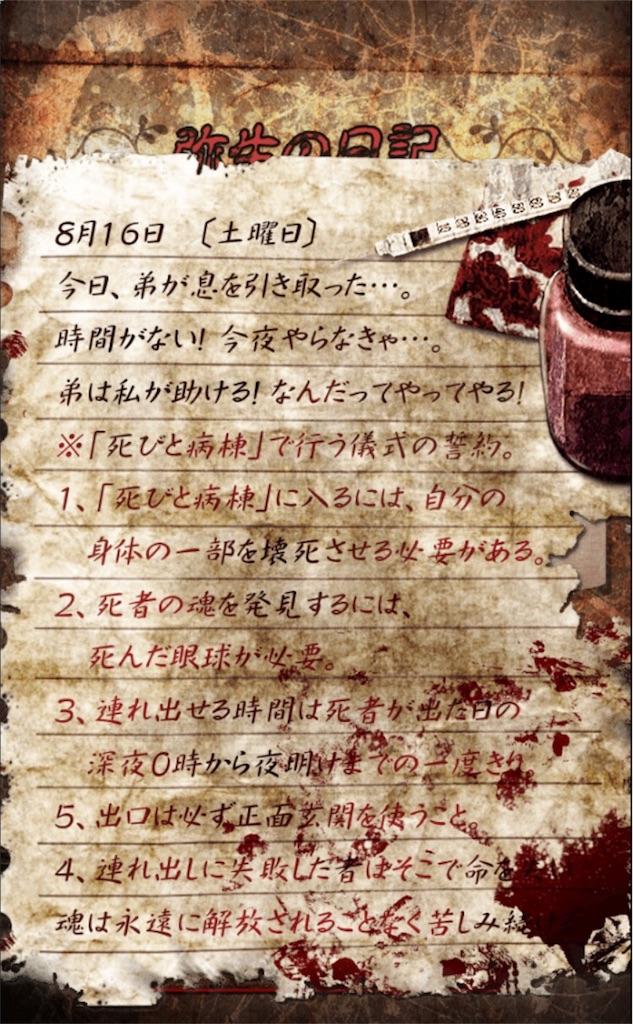 弥生の日記
8月16日 〔土曜日〕
今日、弟が息を引き取った…。
時間がない! 今夜やらなきゃ…。
弟は私が助ける! なんだってやってやる!
※「死びと病棟」で行う儀式の誓約。
1、「死びと病棟」に入るには、自分の
身体の一部を壊死させる必要がある。
2、死者の魂を発見するには、
死んだ眼球が必要。
3、連れ出せる時間は死者が出た日の
深夜0時から夜明けまでの一度きり
5、出口は必ず正面玄関を使うこと。
4、連れ出しに失敗した者はそこで命を
魂は永遠に解放されることなく苦しみ続